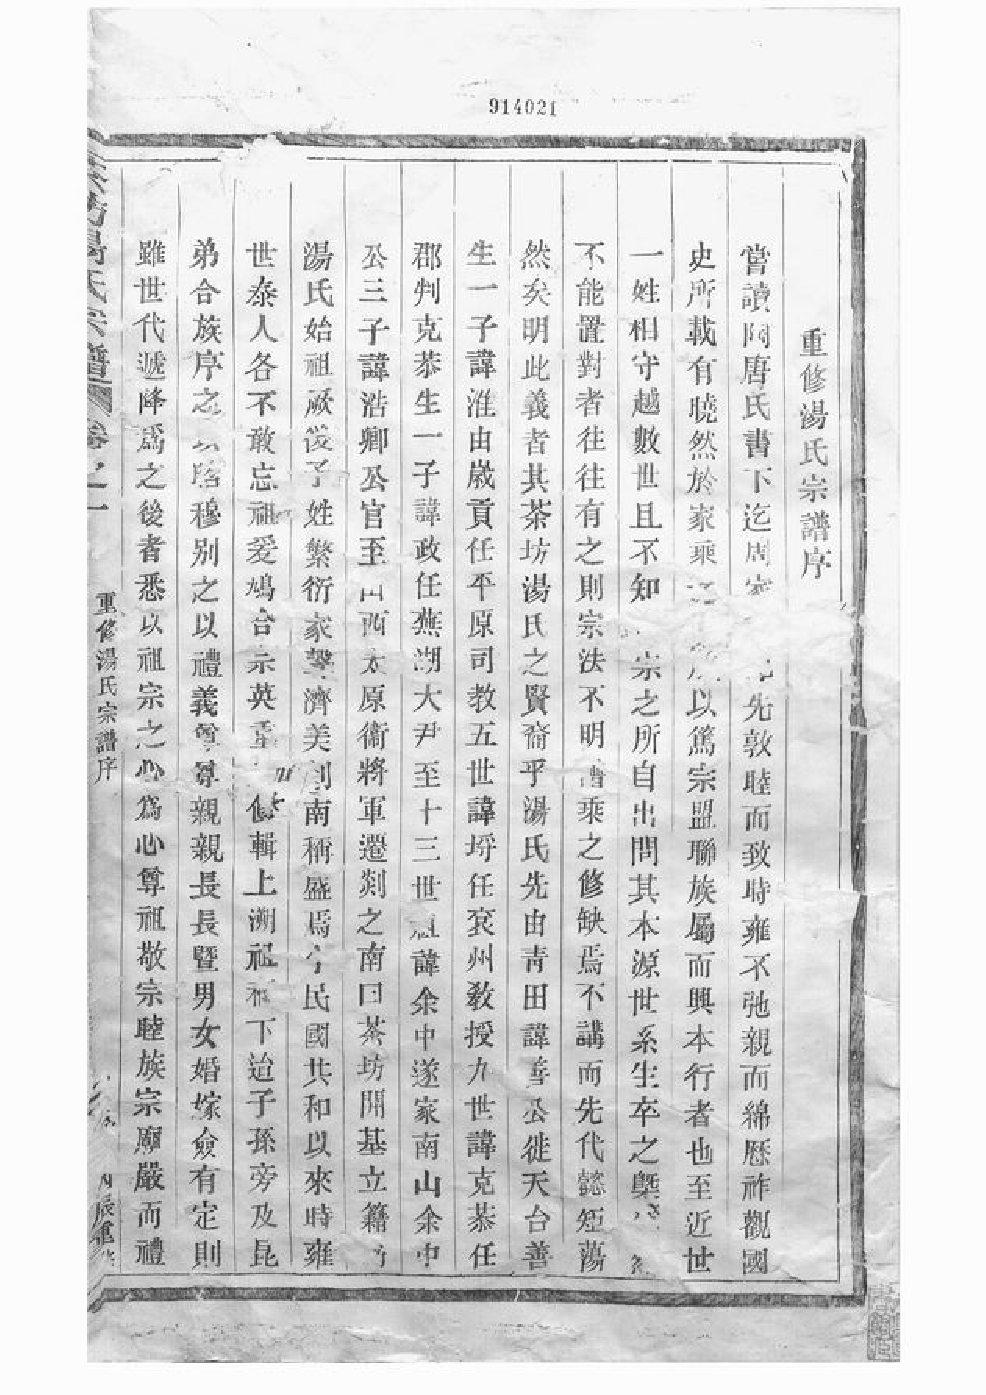 914021
重修湯氏宗譜序
嘗讀陶唐氏書下迄周家 先敦睦而致時雍不弛親而綿歷祚觀國
史所載有曉然於家乘 所以篤宗盟聯族屬而興本行者也至近世
一姓相守越數世且不知 宗之所自出問其本源世系生卒之槩
不能置對者往往有之則宗法不明譜乘之修缺焉不講而先代懿短蕩
然矣明此義者其茶坊湯氏之賢裔乎湯氏先由青田諱 公徙天台善
生一子諱淮由歲貢任平原司教五世諱垺任兗州教授九世諱克恭任
郡判克恭生一子諱政任蕪湖大尹至十三世祖諱余中遂家南山余中
公三子諱浩卿公官至山西太原衞將軍遷剡之南曰茶坊開基立籍
湯氏始祖厥後子姓繁衍家聲濟美剡南稱盛焉今民國共和以來時雍
世泰人各不敢忘祖爰鳩合宗英重 修輯上溯祖 下迨子孫旁及昆
弟合族序之以昭穆别之以禮義尊尊親親長長暨男女婚嫁僉有定則
雖世代遞降爲之後者悉以祖宗之心爲心尊祖敬宗睦族宗廟嚴而禮
茶坊湯氏宗譜 卷之一
重修湯氏宗譜序
丙辰重